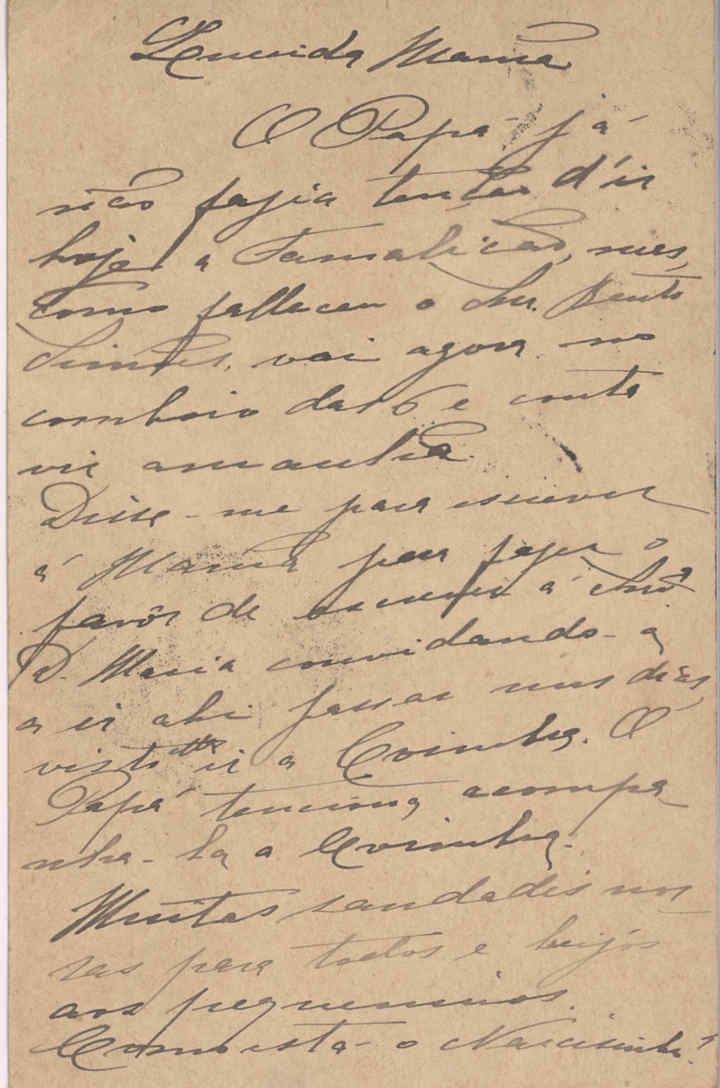 Querida Mamã
O Papá já
não fazia tenção d'ir
hoje a Famalicão, mas,
como falleceu o Snr. Bento
Simões, vai agora no
comboio das 6 e conta
vir amanhã.
Disse-me para escrever
á Mamã para fazer o
favôr de escrever á Snrª
D. Maria convidando-a
a ir ahi passar uns dias,
visto ir a Coimbra. O
Papá tenciona acompa
nha-la a Coimbra.
Muitas saudades nos
sas para todos e beijos
aos pequeninos.
Como está o Narcisinho?